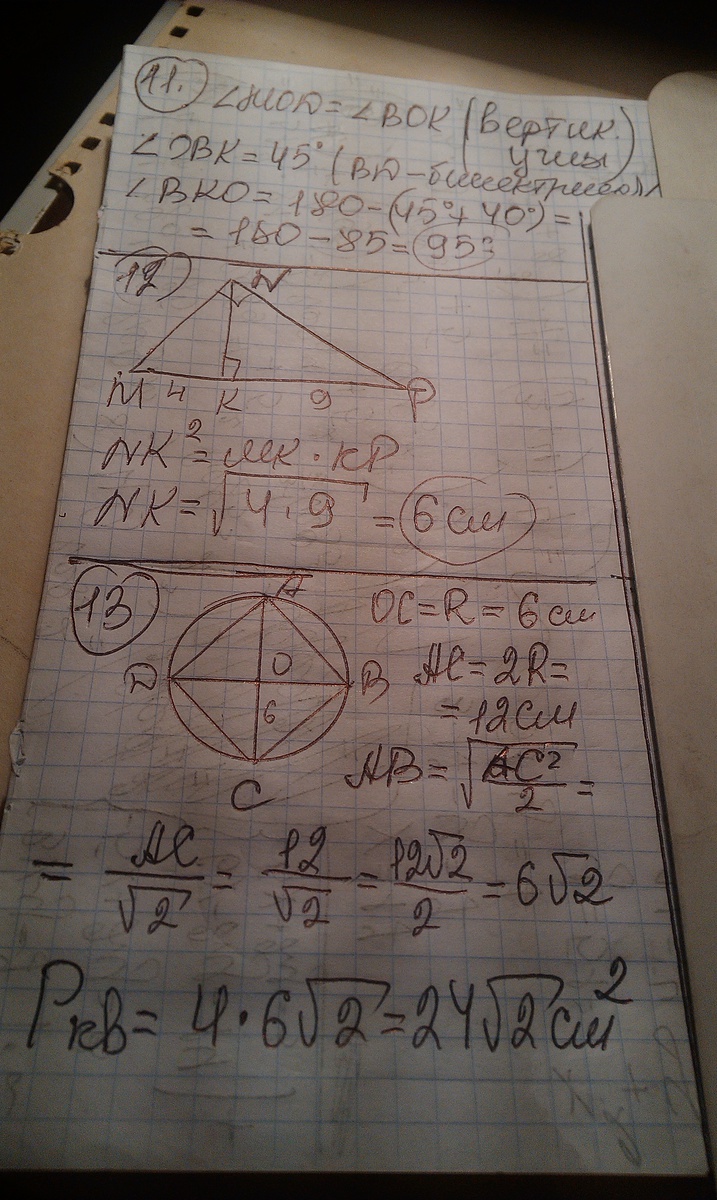 11. ∠MOD = ∠BOK (Вертик. углы)
∠OBK = 45° (BD – биссектриса)
∠BKO = 180 – (45° + 40°) =
= 180 – 85 = 95°
12 N
M 4 K 9 P
NK² = MK · KP
NK = √4·9 = 6 см
13 A
D O B
6
C
OC = R = 6 см
AC = 2R =
= 12 см
AB = √AC²/2 =
= AC/√2 = 12/√2 = 12√2/2 = 6√2
Pкв = 4 · 6√2 = 24√2 см²